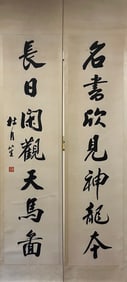 名書欣見神龍本
長日閑觀天馬圖
杜月笙